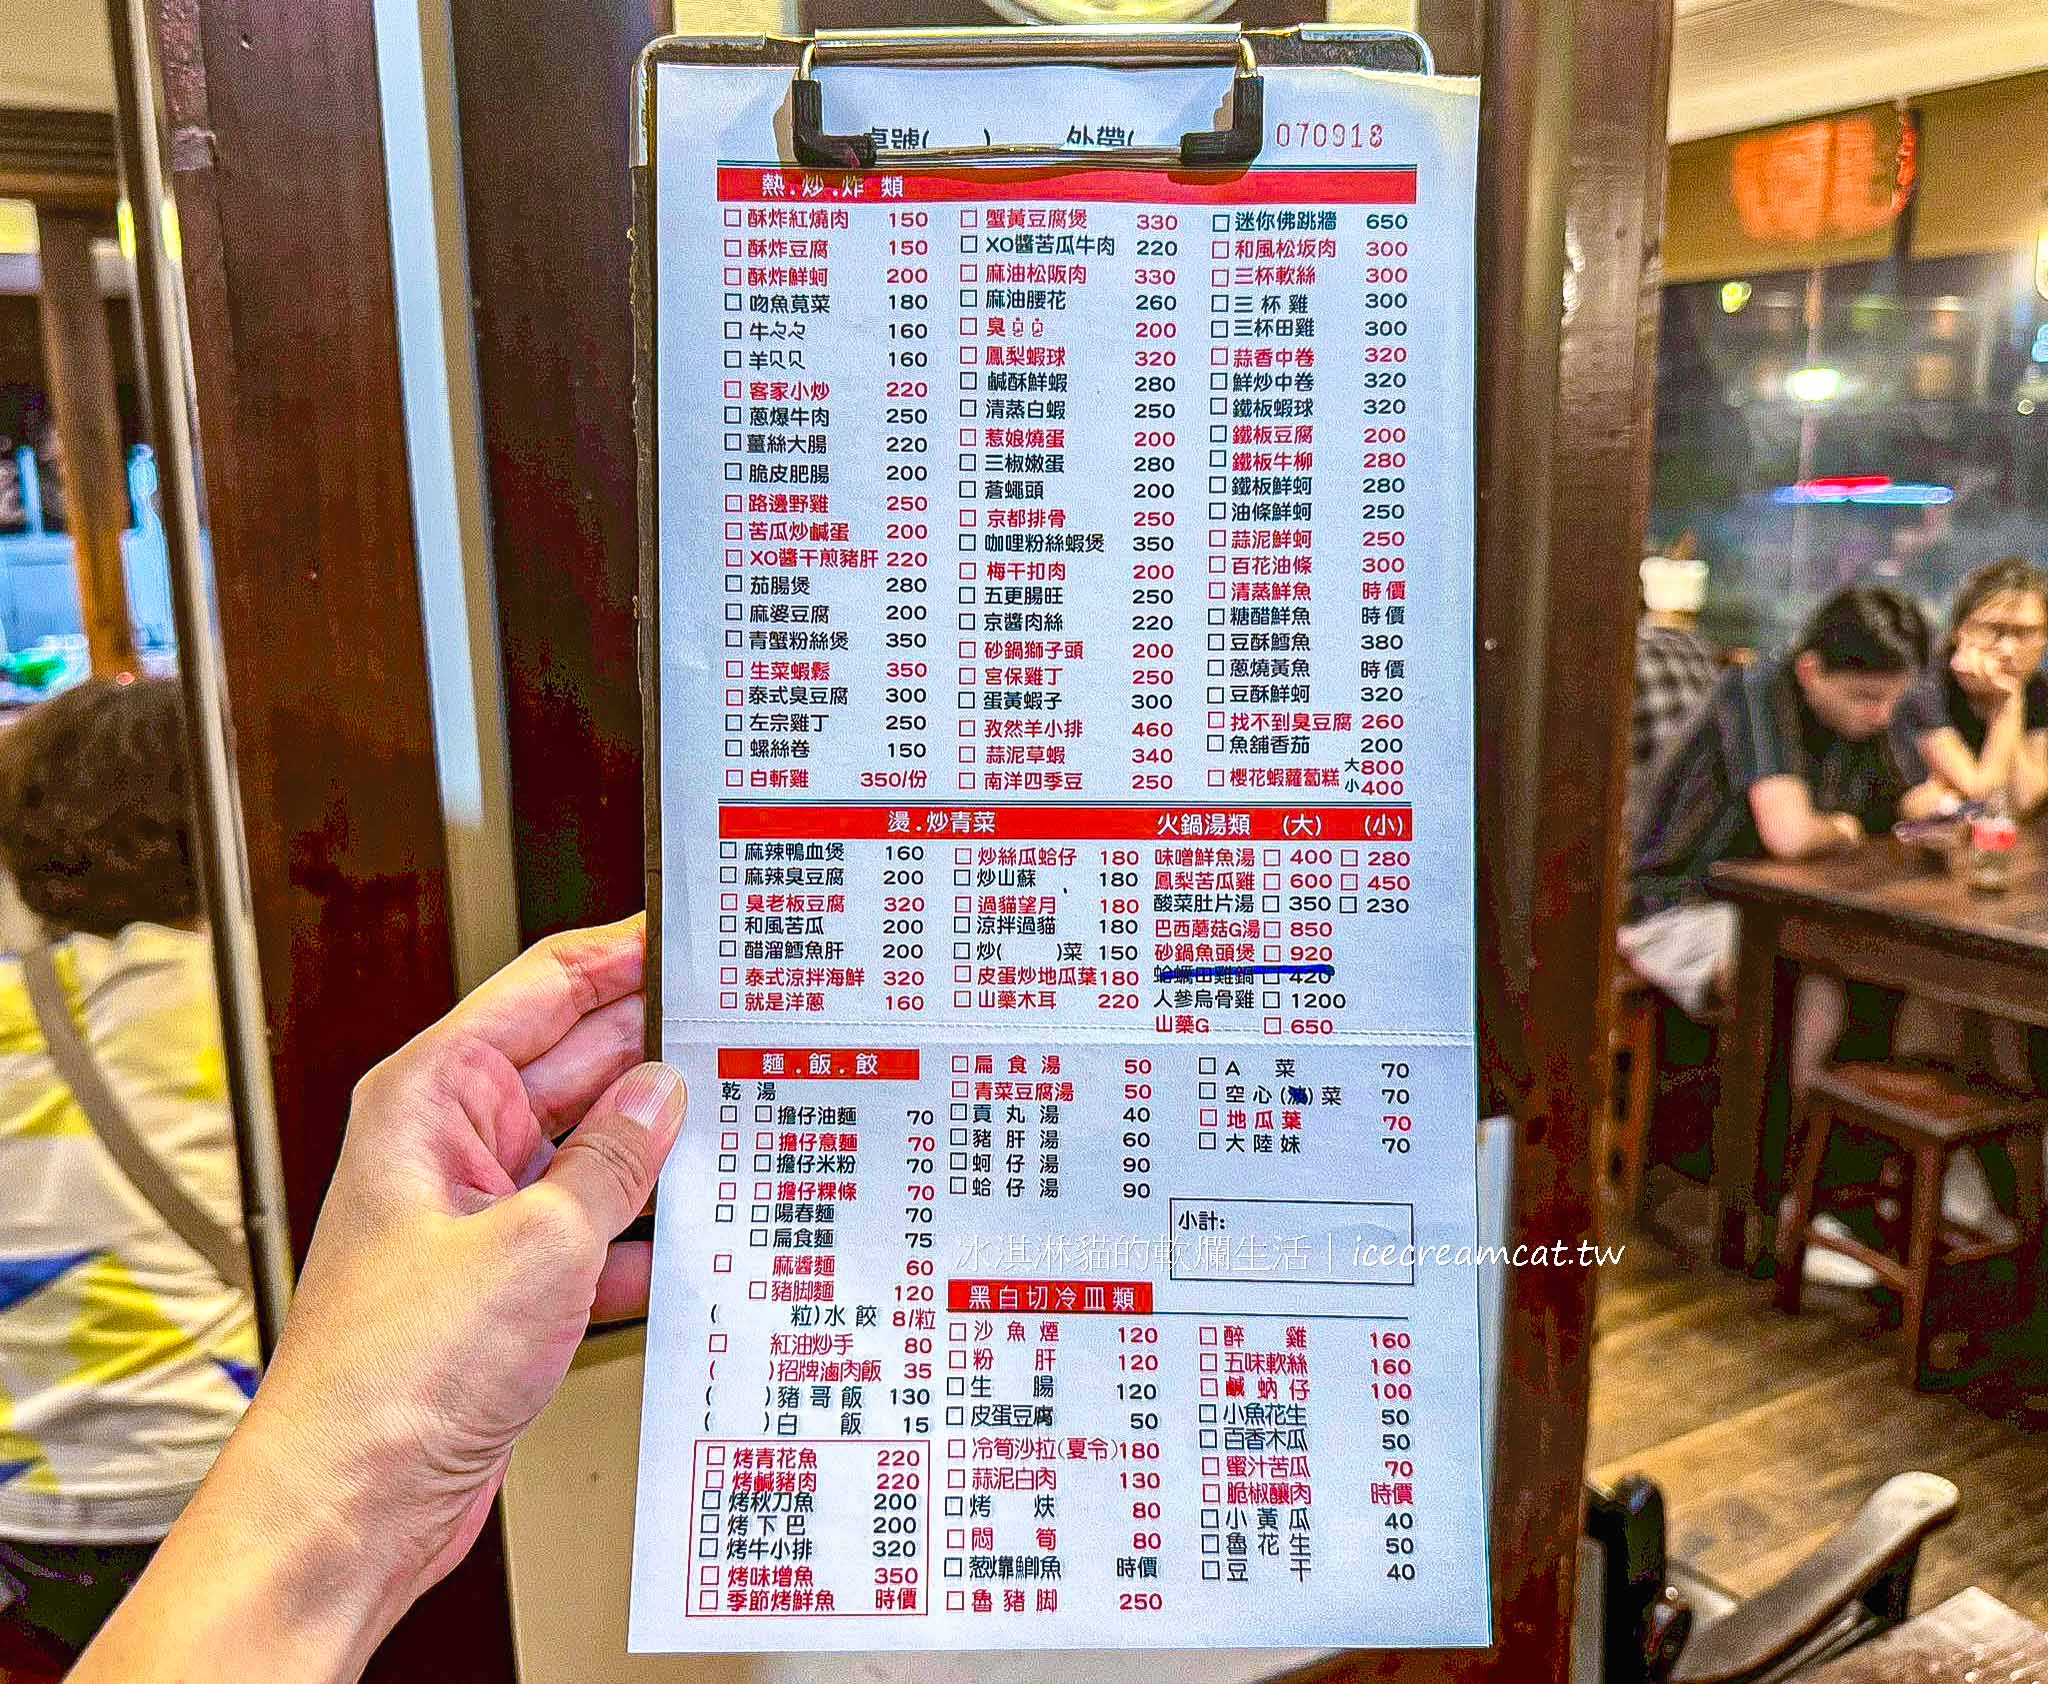 桌號(　　) 外帶(
070918
熱.炒.炸 類
□酥炸紅燒肉 150
□酥炸豆腐 150
□酥炸鮮蚵 200
□吻魚莧菜 180
□牛ㄆㄆ 160
□羊ㄆㄆ 160
□客家小炒 220
□蔥爆牛肉 250
□薑絲大腸 220
□脆皮肥腸 200
□路邊野雞 250
□苦瓜炒鹹蛋 200
□XO醬干煎豬肝 220
□茄腸煲 280
□麻婆豆腐 200
□青蟹粉絲煲 350
□生菜蝦鬆 350
□泰式臭豆腐 300
□左宗雞丁 250
□螺絲卷 150
□白斬雞 350/份
□蟹黃豆腐煲 330
□XO醬苦瓜牛肉 220
□麻油松阪肉 330
□麻油腰花 260
□臭 200
□鳳梨蝦球 320
□鹹酥鮮蝦 280
□清蒸白蝦 250
□惹娘燒蛋 200
□三椒嫩蛋 280
□蒼蠅頭 200
□京都排骨 250
□咖哩粉絲蝦煲 350
□梅干扣肉 200
□五更腸旺 250
□京醬肉絲 220
□砂鍋獅子頭 200
□宮保雞丁 250
□蛋黃蝦子 300
□孜然羊小排 460
□蒜泥草蝦 340
□南洋四季豆 250
□迷你佛跳牆 650
□和風松坂肉 300
□三杯軟絲 300
□三杯雞 300
□三杯田雞 300
□蒜香中卷 320
□鮮炒中卷 320
□鐵板蝦球 320
□鐵板豆腐 200
□鐵板牛柳 280
□鐵板鮮蚵 280
□油條鮮蚵 250
□蒜泥鮮蚵 250
□百花油條 300
□清蒸鮮魚 時價
□糖醋鮮魚 時價
□豆酥鱈魚 380
□蔥燒黃魚 時價
□豆酥鮮蚵 320
□找不到臭豆腐 260
□魚舖香茄 200
□櫻花蝦蘿蔔糕 大800 小400
燙.炒青菜
□麻辣鴨血煲 160
□麻辣臭豆腐 200
□臭老板豆腐 320
□和風苦瓜 200
□醋溜鱈魚肝 200
□泰式涼拌海鮮 320
□就是洋蔥 160
□炒絲瓜蛤仔 180
□炒山蘇 180
□過貓望月 180
□涼拌過貓 180
□炒(　　)菜 150
□皮蛋炒地瓜葉 180
□山藥木耳 220
火鍋湯類 (大) (小)
味噌鮮魚湯 □ 400 □ 280
鳳梨苦瓜雞 □ 600 □ 450
酸菜肚片湯 □ 350 □ 230
巴西蘑菇G湯 □ 850
砂鍋魚頭煲 □ 920
蛤蠣田雞鍋 □ 420
人參烏骨雞 □ 1200
山藥G □ 650
麵.飯.餃
乾 湯
□ □擔仔油麵 70
□ □擔仔意麵 70
□ □擔仔米粉 70
□ □擔仔粿條 70
□ □陽春麵 70
□扁食麵 75
□ 麻醬麵 60
□豬脚麵 120
(　　粒)水餃 8/粒
□ 紅油炒手 80
(　　)招牌滷肉飯 35
(　　)豬哥飯 130
(　　)白飯 15
□烤青花魚 220
□烤鹹豬肉 220
□烤秋刀魚 200
□烤下巴 200
□烤牛小排 320
□烤味增魚 350
□季節烤鮮魚 時價
□扁食湯 50
□青菜豆腐湯 50
□貢丸湯 40
□豬肝湯 60
□蚵仔湯 90
□蛤仔湯 90
□A菜 70
□空心( )菜 70
□地瓜葉 70
□大陸妹 70
小計:
冰淇淋貓的軟爛生活｜icecreamcat.tw
黑白切冷皿類
□沙魚煙 120
□粉肝 120
□生腸 120
□皮蛋豆腐 50
□冷筍沙拉(夏令) 180
□蒜泥白肉 130
□烤麩 80
□悶筍 80
□葱㸆鯽魚 時價
□魯豬脚 250
□醉雞 160
□五味軟絲 160
□鹹蚋仔 100
□小魚花生 50
□百香木瓜 50
□蜜汁苦瓜 70
□脆椒釀肉 時價
□小黃瓜 40
□魯花生 50
□豆干 40